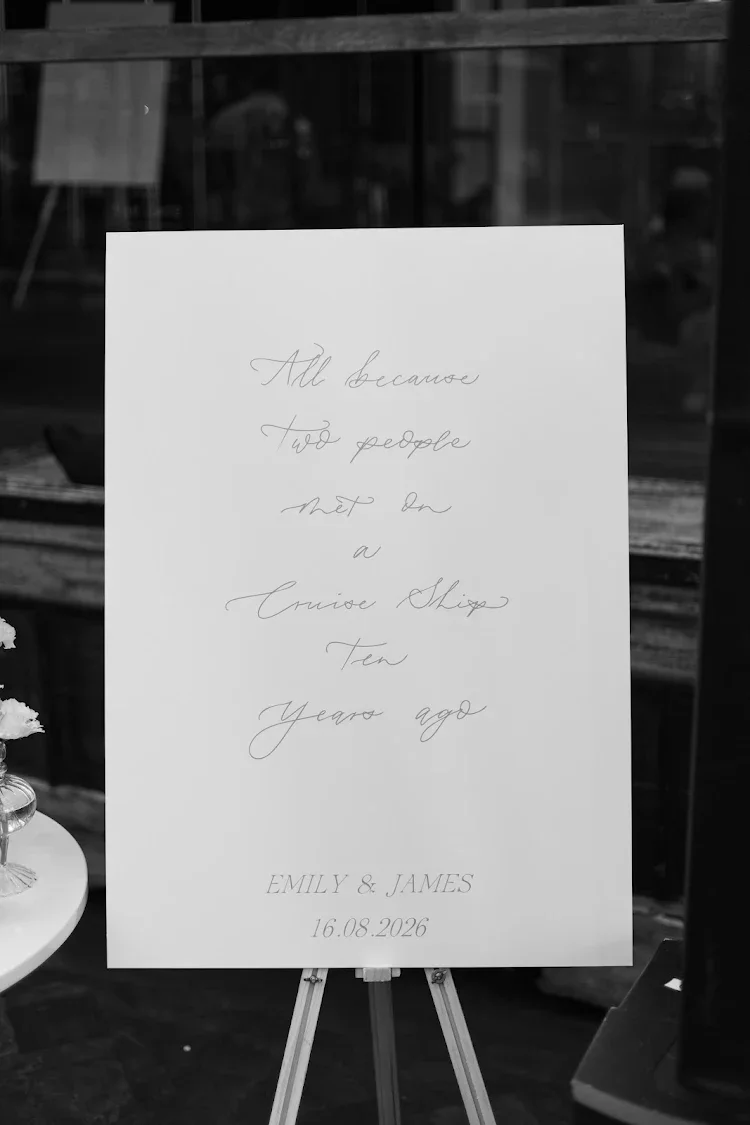 All because
Two people
met on
a
Cruise Ship
Ten
Years ago
EMILY & JAMES
16.08.2026